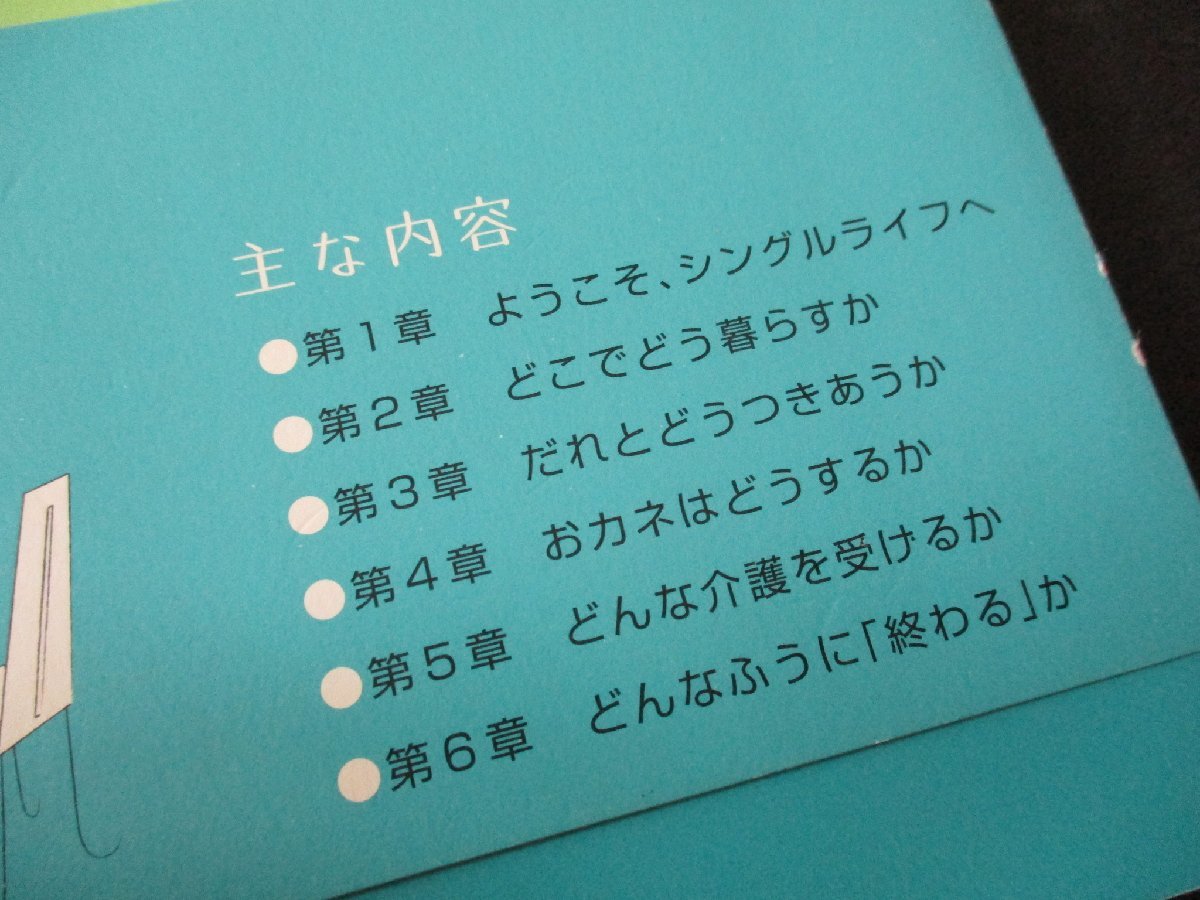 主な内容
●第1章 ようこそ、シングルライフへ
●第2章 どこでどう暮らすか
●第3章 だれとどうつきあうか
●第4章 おカネはどうするか
●第5章 どんな介護を受けるか
●第6章 どんなふうに「終わる」か